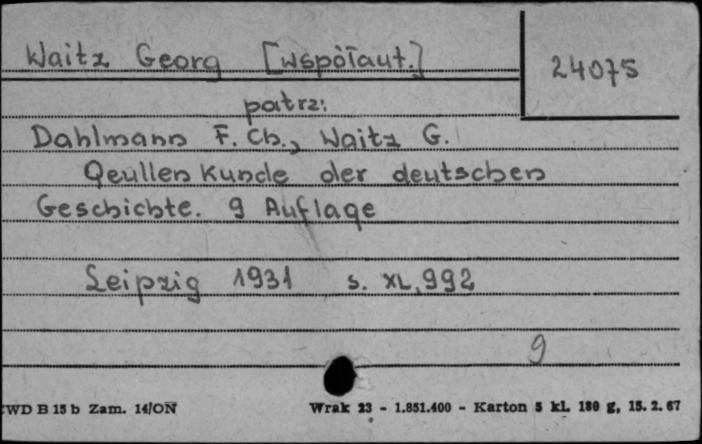 Waitz Georg [współaut.]
24075
patrz:
Dahlmann F. Ch., Waitz G.
Qeullenkunde der deutschen
Geschichte. 9 Auflage
Leipzig 1931 s. XL, 992
9
WD B 15 b Zam. 14/ON
Wrak 23 - 1.851.400 - Karton 5 kl. 180 g, 15. 2. 67